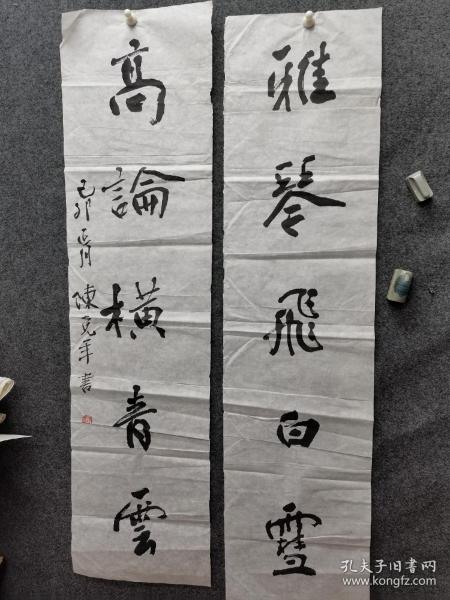 雅琴飛白雪
高論橫青雲
己卯正月 陳克年書
孔夫子旧书网
www.kongfz.com